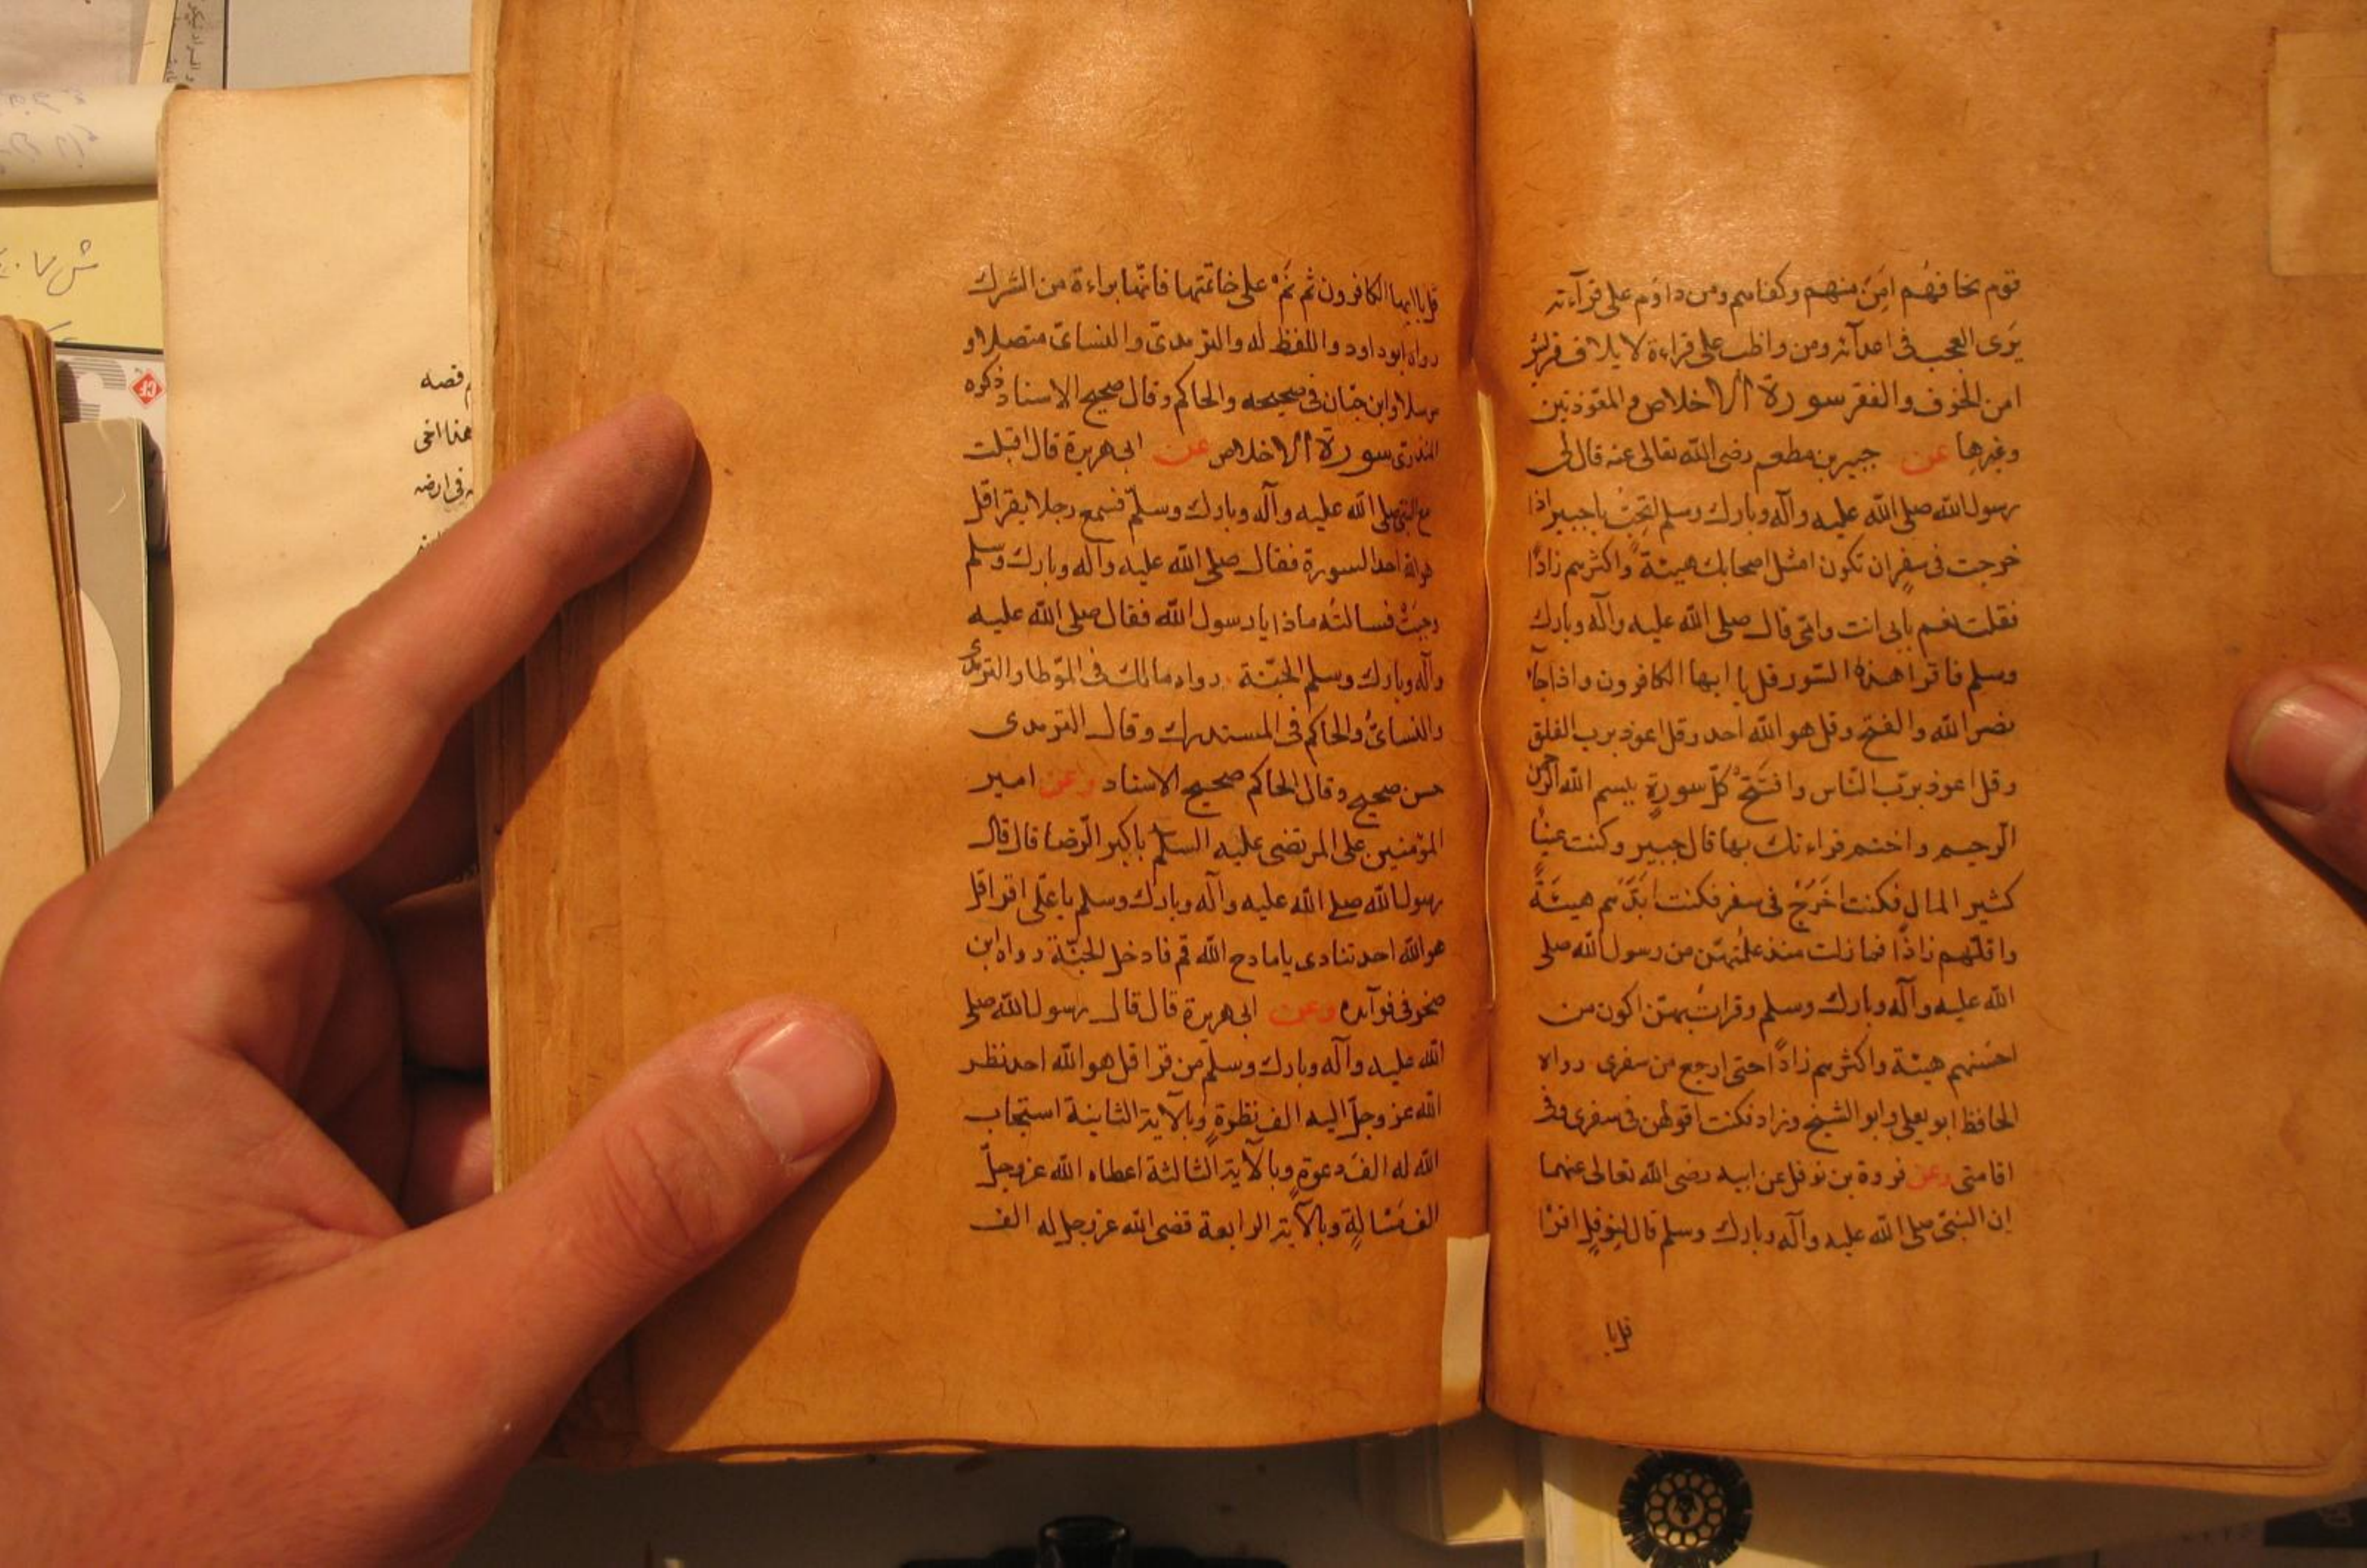 قوم يخافهُم امِنَ منهم وكفاهم ومن داوم على قرآءته
يَرَى العجب فى امدآئه ومن واظب على قراءة لايلاف قريش
امن الخوف والفقر سورة الاخلاص والمعوّذتين
وغيرها عن جبير بن مطعم رضى الله تعالى عنه قال لى
رسول الله صلى الله عليه وآله وبارك وسلم اتحبّ يا جبير اذا
خرجت فى سفرٍ ان تكون امثل اصحابك هيئةً واكثرهم زادًا
فقلت نعم بابى انت وامّى قال صلى الله عليه وآله وبارك
وسلم فاقرا هذه السّور قل يا ايها الكافرون واذا جآء
نصر الله والفتح وقل هو الله احد وقل اعوذ برب الفلق
وقل اعوذ بربّ النّاس وافتتح كلّ سورةٍ ببسم الله الرحمن
الرحيم واختم قراءتك بها قال جبير وكنت غنيًّا
كثير المال فكنت اخرج فى سفر فكنت ابذّهم هيئةً
واقلّهم زادًا فما زلت منذ علمتهنّ من رسول الله صلى
الله عليه وآله وبارك وسلم وقرات بهنّ اكون من
احسنهم هيئة واكثرهم زادًا حتى ارجع من سفرى رواه
الحافظ ابو يعلى وابو الشيخ وزاد فكنت اقولهن فى سفرى وفى
اقامتى وعن فروة بن نوفل عن ابيه رضى الله تعالى عنهما
ان النبىّ صلى الله عليه وآله وبارك وسلم قال لنوفلٍ اقرا
قل يا
قل يا ايها الكافرون ثم نَمْ على خاتمتها فانّها براءة من الشرك
رواه ابو داود واللفظ له والترمدىّ والنسائىّ متصلا و
مرسلا وابن حبّان فى صحيحه والحاكم وقال صحيح الاسناد ذكره
المنذرى سورة الاخلاص عن ابى هريرة قال اقبلت
مع النبى صلى الله عليه وآله وبارك وسلّم فسمع رجلا يقرا قل
هو الله احد السورة فقال صلى الله عليه وآله وبارك وسلم
وجبَتْ فسالتُه ماذا يا رسول الله فقال صلى الله عليه
وآله وبارك وسلم الجنّة رواه مالك فى الموّطا والترمدى
والنسائىُّ والحاكم فى المستدرك وقال الترمدى
حسن صحيح وقال الحاكم صحيح الاسناد وعن امير
المؤمنين على المرتضى عليه السلم باكبر الرّضا قال قال
رسول الله صلى الله عليه وآله وبارك وسلم يا علّى اقرا قل
هو الله احد تنادى يا مادح الله قم فادخل الجنّة رواه ابن
صخر فى فوآئده وعن ابى هريرة قال قال رسول الله صلى
الله عليه وآله وبارك وسلّم من قرا قل هو الله احد نظر
الله عز وجلّ اليه الف نظرةٍ وبالآية الثانية استجاب
الله له الف دعوةٍ وبالآية الثالثة اعطاه الله عز وجلّ
الف مَسْالةٍ وبالآية الرابعة قضى الله عز وجل له الف
قصه
هذا اخى
فى ارضه